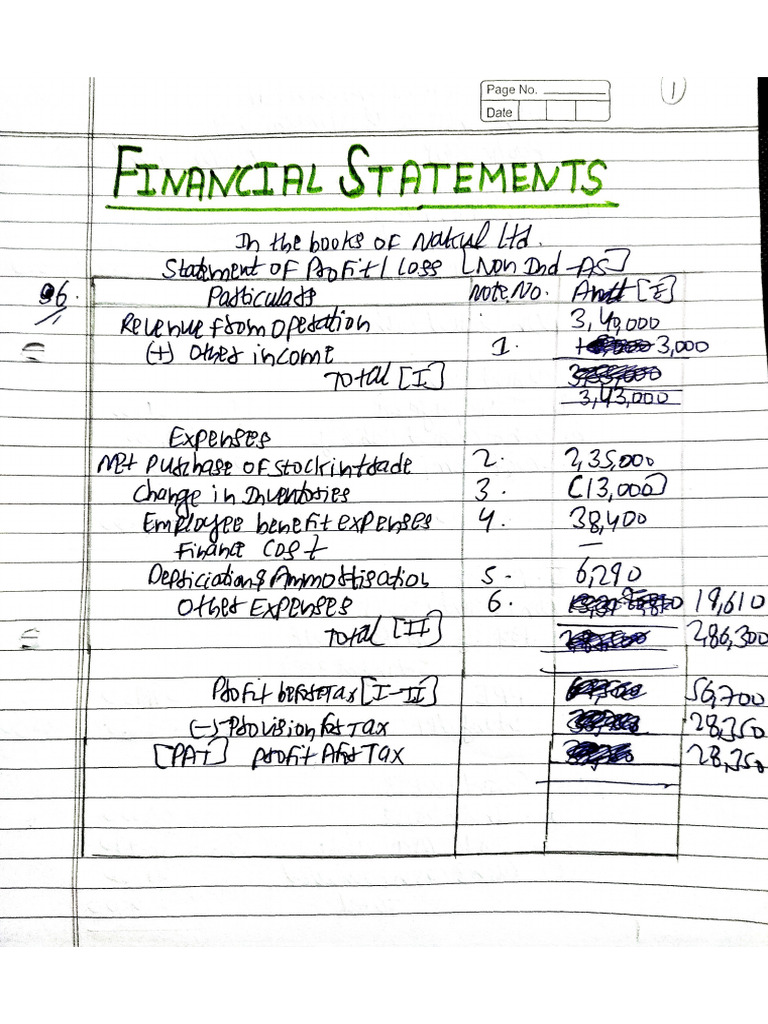 Page No.
1
Date
FINANCIAL STATEMENTS
In the books of Nakul Ltd.
Statement of Profit / Loss [Non Ind-AS]
96.
Particulars Note. No. Amt [₹]
Revenue from Operation 3,40,000
(+) Other income 1. 3,000
Total [I]
3,43,000
Expenses
Net Purchase of stock in trade 2. 2,35,000
Change in Inventories 3. (13,000)
Employee benefit expenses 4. 38,400
Finance Cost —
Depriciation & Ammortisation 5. 6,290
Other Expenses 6. 19,610
Total [II] 286,300
Profit before Tax [I-II] 56,700
(-) Provision for Tax 28,350
[PAT] Profit After Tax 28,350